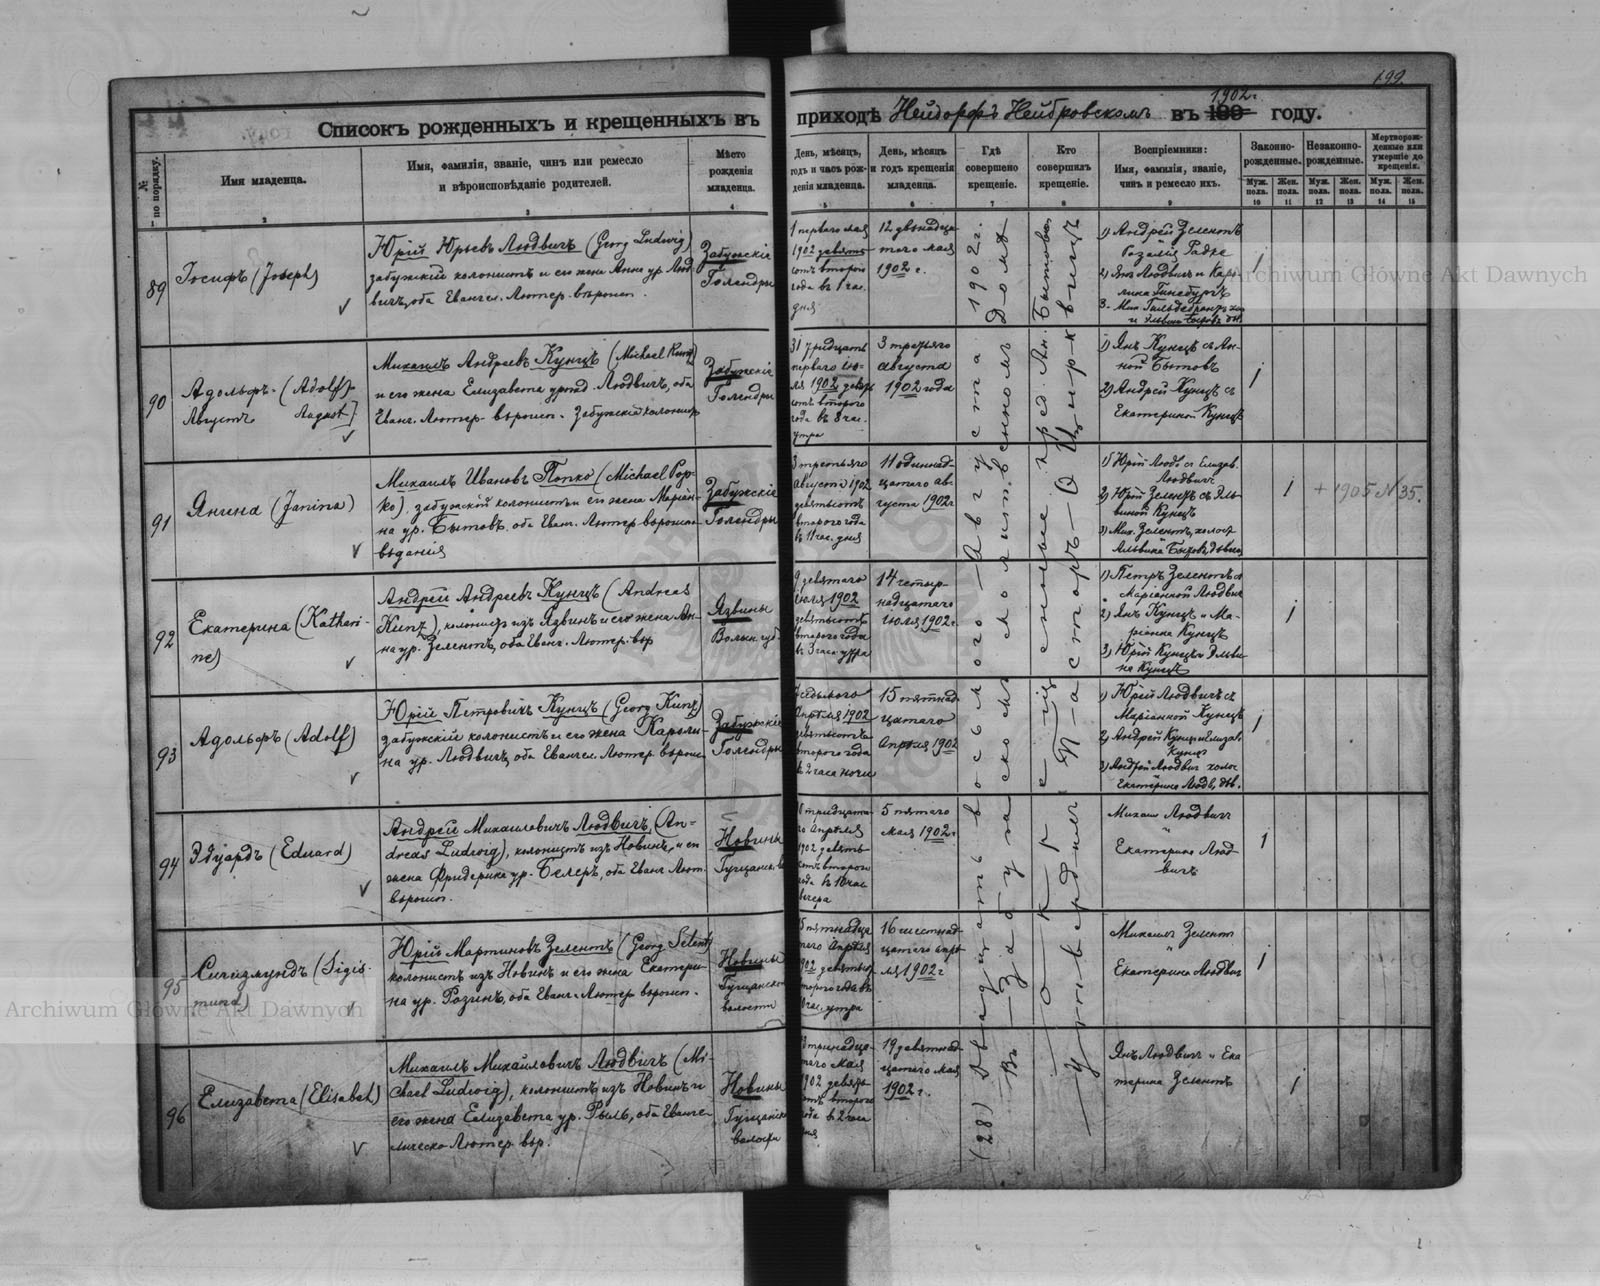 192
Списокъ рожденныхъ и крещенныхъ въ приходѣ Нейдорфъ Нейбровскомъ въ 1902 г. году.
№ по порядку.
Имя младенца.
Имя, фамилія, званіе, чинъ или ремесло
и вѣроисповѣданіе родителей.
Мѣсто
рожденія
младенца.
День, мѣсяцъ,
годъ и часъ рож-
денія младенца.
День, мѣсяцъ
и годъ крещенія
младенца.
Гдѣ
совершено
крещеніе.
Кто
совершилъ
крещеніе.
Воспріемники:
Имя, фамилія, званіе,
чинъ и ремесло ихъ.
Законно-
рожденные.
Незаконно-
рожденные.
Мертворож-
денные или
умершіе до
крещенія.
Муж. пола.
Жен. пола.
Муж. пола.
Жен. пола.
Муж. пола.
Жен. пола.
1 2 3 4 5 6 7 8 9 10 11 12 13 14 15
89
Іосифъ (Joseph)
Юрій Юрьевъ Людвичъ (Georg Ludwig)
забужскій колонистъ и его жена Анна ур. Люд-
вичъ, оба Евангел. Лютер. вѣроисп.
Забужскіе
Голендры
1 перваго мая
1902 девять-
сотъ второго
года въ 1 час.
дня
12 двѣнадца-
таго мая
1902 г.
1) Андрей Зелентъ
Розалія Радке
2) Янъ Людвичъ и Каро-
лина Гинсбургъ
1
90
Адольфъ- (Adolf)-
Августъ August]
Михаилъ Андреевъ Кунцъ (Michael Kunz)
и его жена Елизавета урожд. Людвичъ, оба
Еванг. Лютер. вѣроисп. Забужскій колонистъ
Забужскіе
Голендры
31 тридцать
перваго ію-
ля 1902 девят
сотъ второго
года въ 8 час.
утра
3 третьяго
августа
1902 года
1) Янъ Кунцъ съ Ан-
ной Бытовъ
2) Андрей Кунцъ съ
Екатериной Кунцъ
1
91
Янина (Janina)
Михаилъ Ивановъ Попко (Michael Pop-
ko), забужскій колонистъ и его жена Маріан-
на ур. Бытовъ, оба Еванг. Лютер. вѣроиспо-
вѣданія
Забужскіе
Голендры
3 третьяго
августа 1902
девятьсотъ
второго года
въ 11 час. дня
11 одиннад-
цатаго ав-
густа 1902 г
1) Юрій Людв. съ Елизав.
Людвичъ
2) Юрій Зелентъ съ Эль-
виной Кунцъ
3) Мих. Зелентъ, холост.
Альвина Бытовъ, дѣвица
1
+ 1905 N 35.
92
Екатерина (Kathari-
ne)
Андрей Андреевъ Кунцъ (Andreas
Kunz), колонистъ изъ Язвинъ и его жена Ан-
на ур. Зелентъ, оба Еванг. Лютер. вѣр
Язвины
Волын. губ.
9 девятаго
іюля 1902
девятьсотъ
второго года
въ 3 часа утра
14 четыр-
надцатаго
іюля 1902 г.
1) Петръ Зелентъ съ
Маріанной Людвич
2) Янъ Кунцъ и Ма-
ріанна Кунцъ
3) Юрій Кунцъ и Эльви-
на Кунцъ
1
93
Адольфъ (Adolf)
Юрій Петровичъ Кунцъ (Georg Kunz)
забужскій колонистъ и его жена Кароли-
на ур. Людвичъ, оба Евангел. Лютер. вѣроисп.
Забужскіе
Голендры
седьмого
Апрѣля 1902
девятьсотъ
второго года
въ 2 часа ночи
15 пятнад-
цатаго
Апрѣля 1902
1) Юрій Людвичъ съ
Маріанной Кунцъ
2) Андрей Кунцъ и Елизав.
Кунцъ
3) Андрей Людвич холос.
Екатерина Людв, дѣв.
1
94
Эдуардъ (Eduard)
Андрей Михаиловичъ Людвичъ, (An-
dreas Ludwig), колонистъ изъ Новинъ, и его
жена Фридерика ур. Белеръ, оба Еванг. Лют.
вѣроисп.
Новины
тридцата-
го Апрѣля
1902 девять-
сотъ второго
года въ 10 час
вечера
5 пятаго
мая 1902 г
Михаил Людвичъ
Екатерина Люд-
вичъ
1
95
Сигизмундъ (Sigis-
mund)
Юрій Мартиновъ Зелентъ (Georg Selent)
колонистъ изъ Новинъ и его жена Екатери-
на ур. Розинъ, оба Еванг. Лютер. вѣроисп.
Новины
волости
15 пятнадца
таго Апрѣля
1902 девятьс.
второго года въ
час. утра
16 шестнад-
цатаго апрѣ-
ля 1902 г
Михаилъ Зелент
Екатерина Людвич
1
96
Елизавета (Elisabet)
Михаилъ Михайловичъ Людвичъ (Mi-
chael Ludwig), колонистъ изъ Новинъ и
его жена Елизавета ур. Рыль, оба Еванге-
лическо Лютер. вѣр.
Новины
волости
тринадца-
таго мая
1902 девять
сотъ второго
года въ 2 часа
дня
19 девятнад-
цатаго мая
1902 г.
Янъ Людвич и Ека
терина Зелентъ
1
(28) Двадцать восьмого Августа 1902 г.
Утвердилъ Пасторъ
Archiwum Główne Akt Dawnych
Archiwum Główne Akt Dawnych